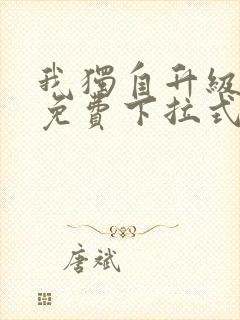 我獨自升級
免費下拉式
唐斌